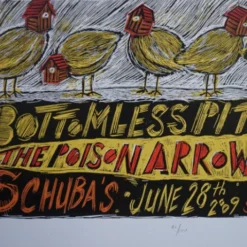 BOTTOMLESS PIT
THE POISON ARROW
SCHUBAS • JUNE 28th 2009